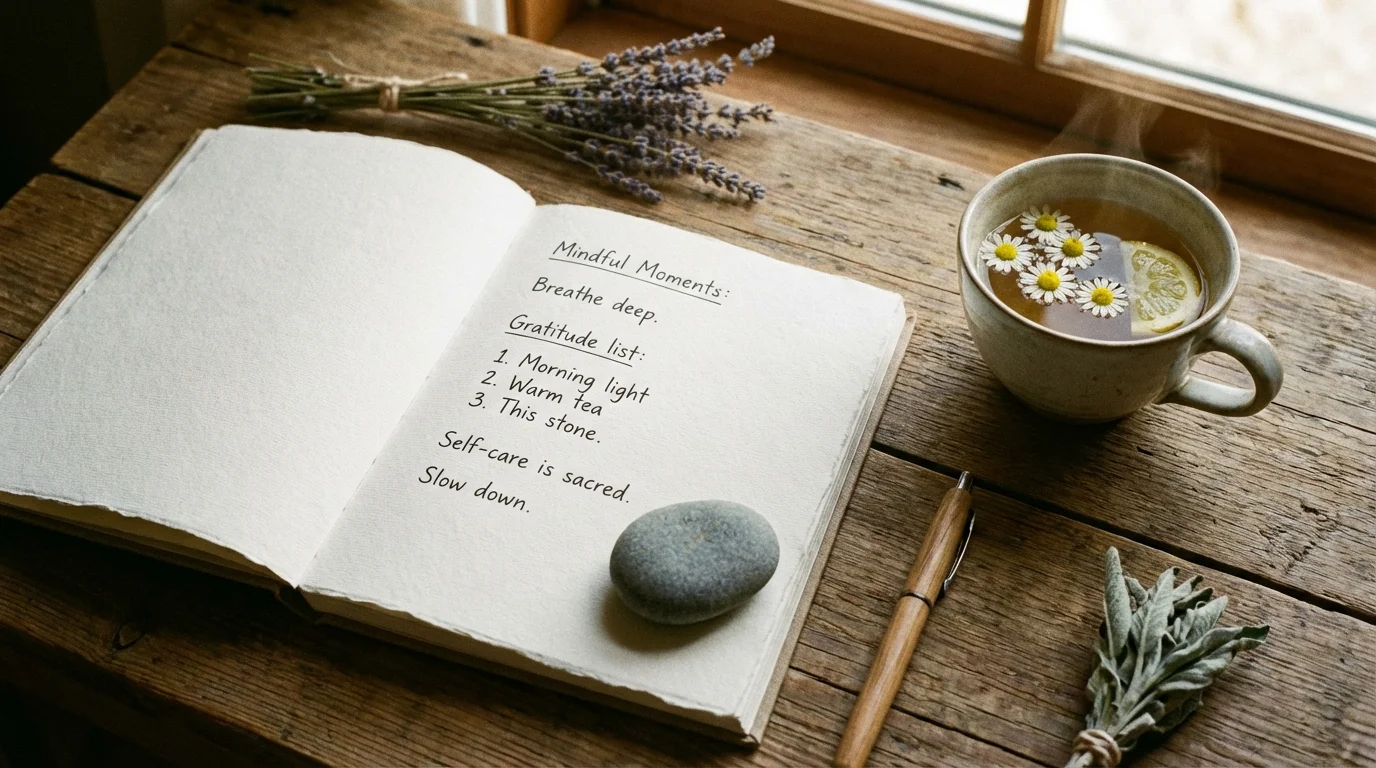 Mindful Moments:
Breathe deep.
Gratitude list:
1. Morning light
2. Warm tea
3. This stone.
Self-care is sacred.
Slow down.